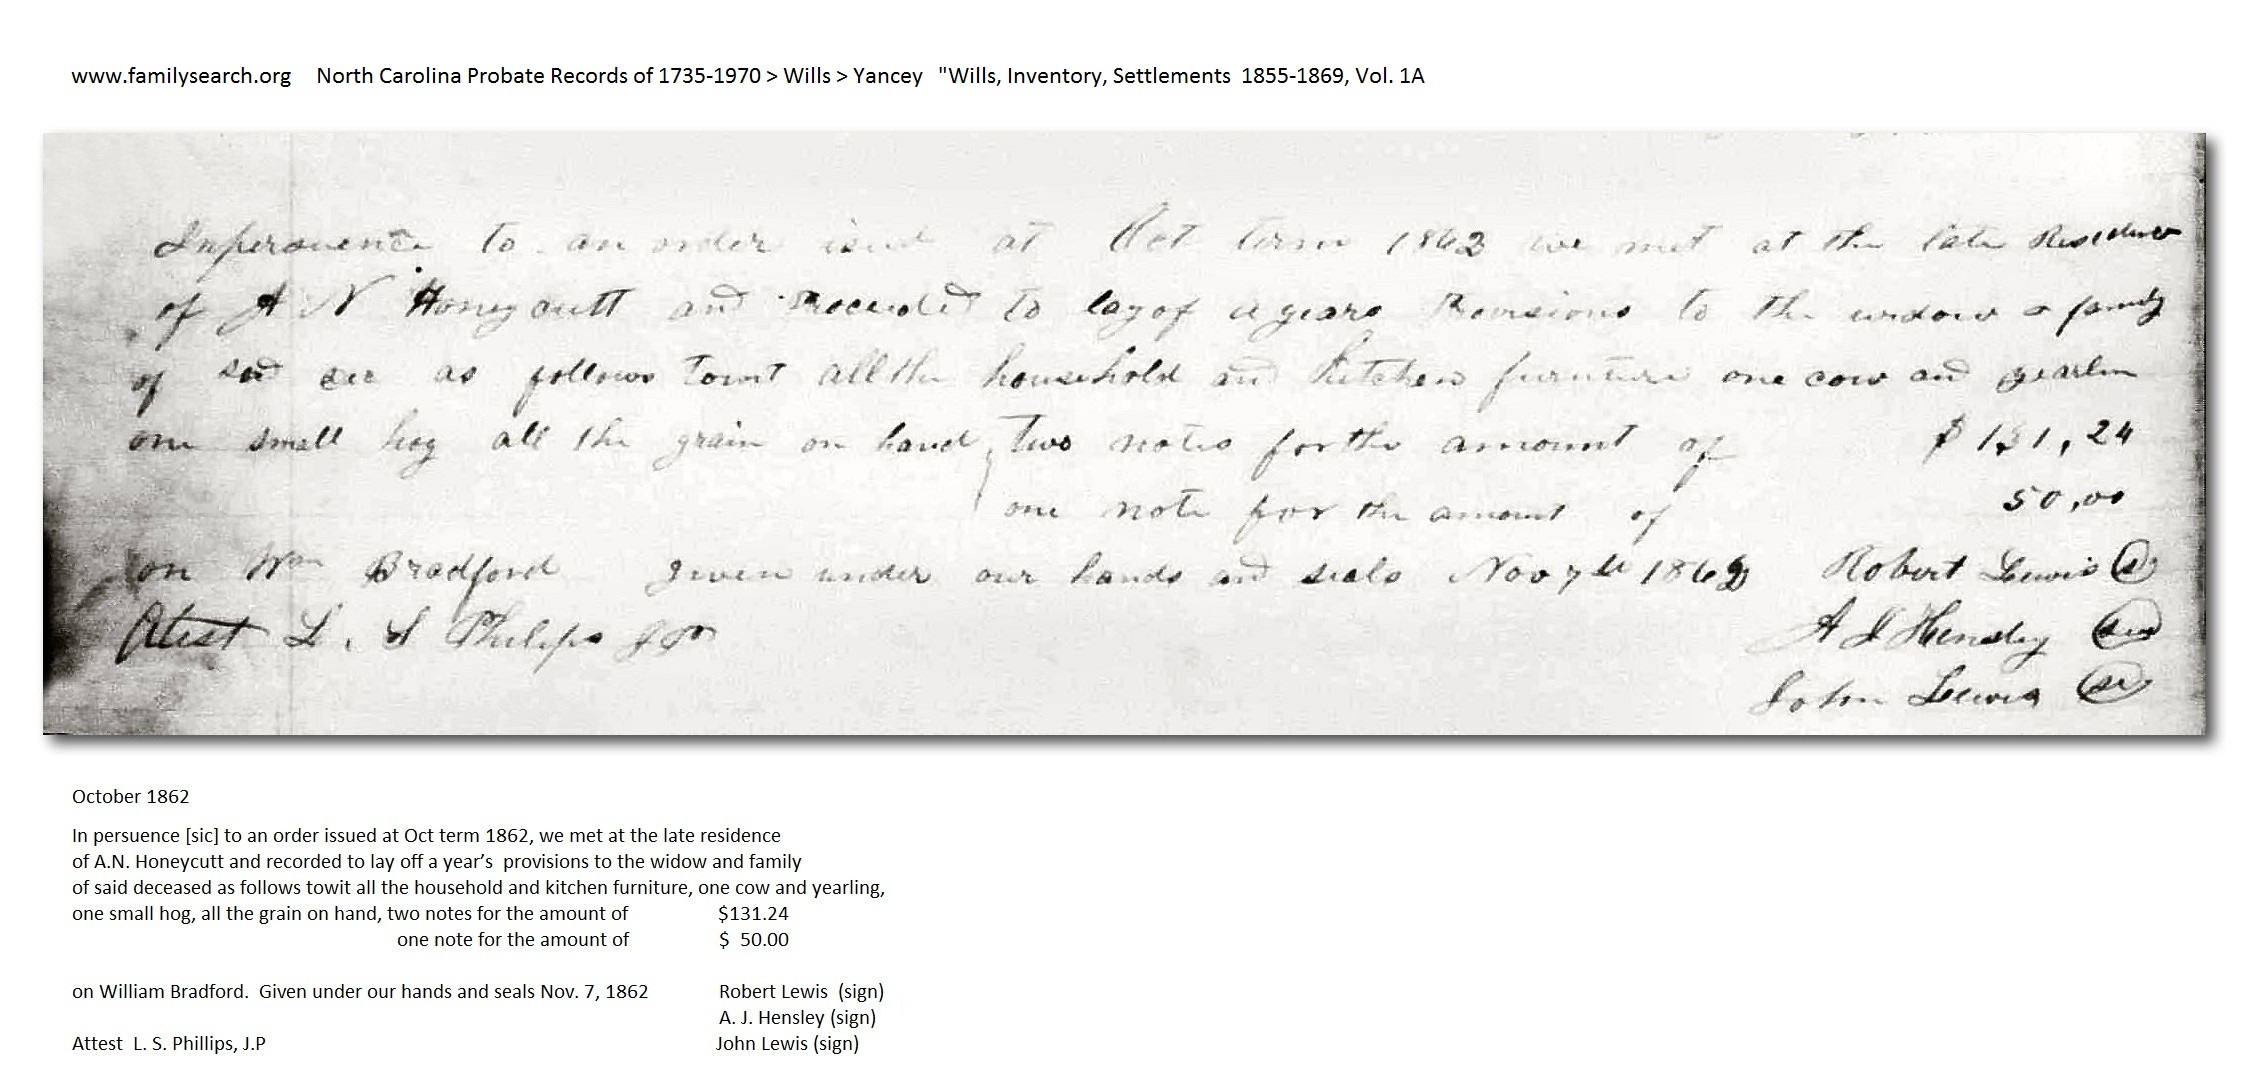 www.familysearch.org North Carolina Probate Records of 1735-1970 > Wills > Yancey "Wills, Inventory, Settlements 1855-1869, Vol. 1A
Inpersuence to an order isued at Oct term 1862 we met at the late Residence
of A N Honeycutt and Proceeded to lay of a years Provisions to the widow & family
of said dec as follows towit all the household and kitchen furniture one cow and yearlin
one small hog all the grain on hand, Two notes for the amount of $ 131,24
one note for the amount of 50,00
on Wm Bradford Given under our hands and seals Nov 7th 1862 Robert Lewis
Atest L. S Philips J P A J Hensley
John Lewis
October 1862
In persuence [sic] to an order issued at Oct term 1862, we met at the late residence
of A.N. Honeycutt and recorded to lay off a year’s provisions to the widow and family
of said deceased as follows towit all the household and kitchen furniture, one cow and yearling,
one small hog, all the grain on hand, two notes for the amount of $131.24
one note for the amount of $ 50.00
on William Bradford. Given under our hands and seals Nov. 7, 1862 Robert Lewis (sign)
A. J. Hensley (sign)
Attest L. S. Phillips, J.P John Lewis (sign)